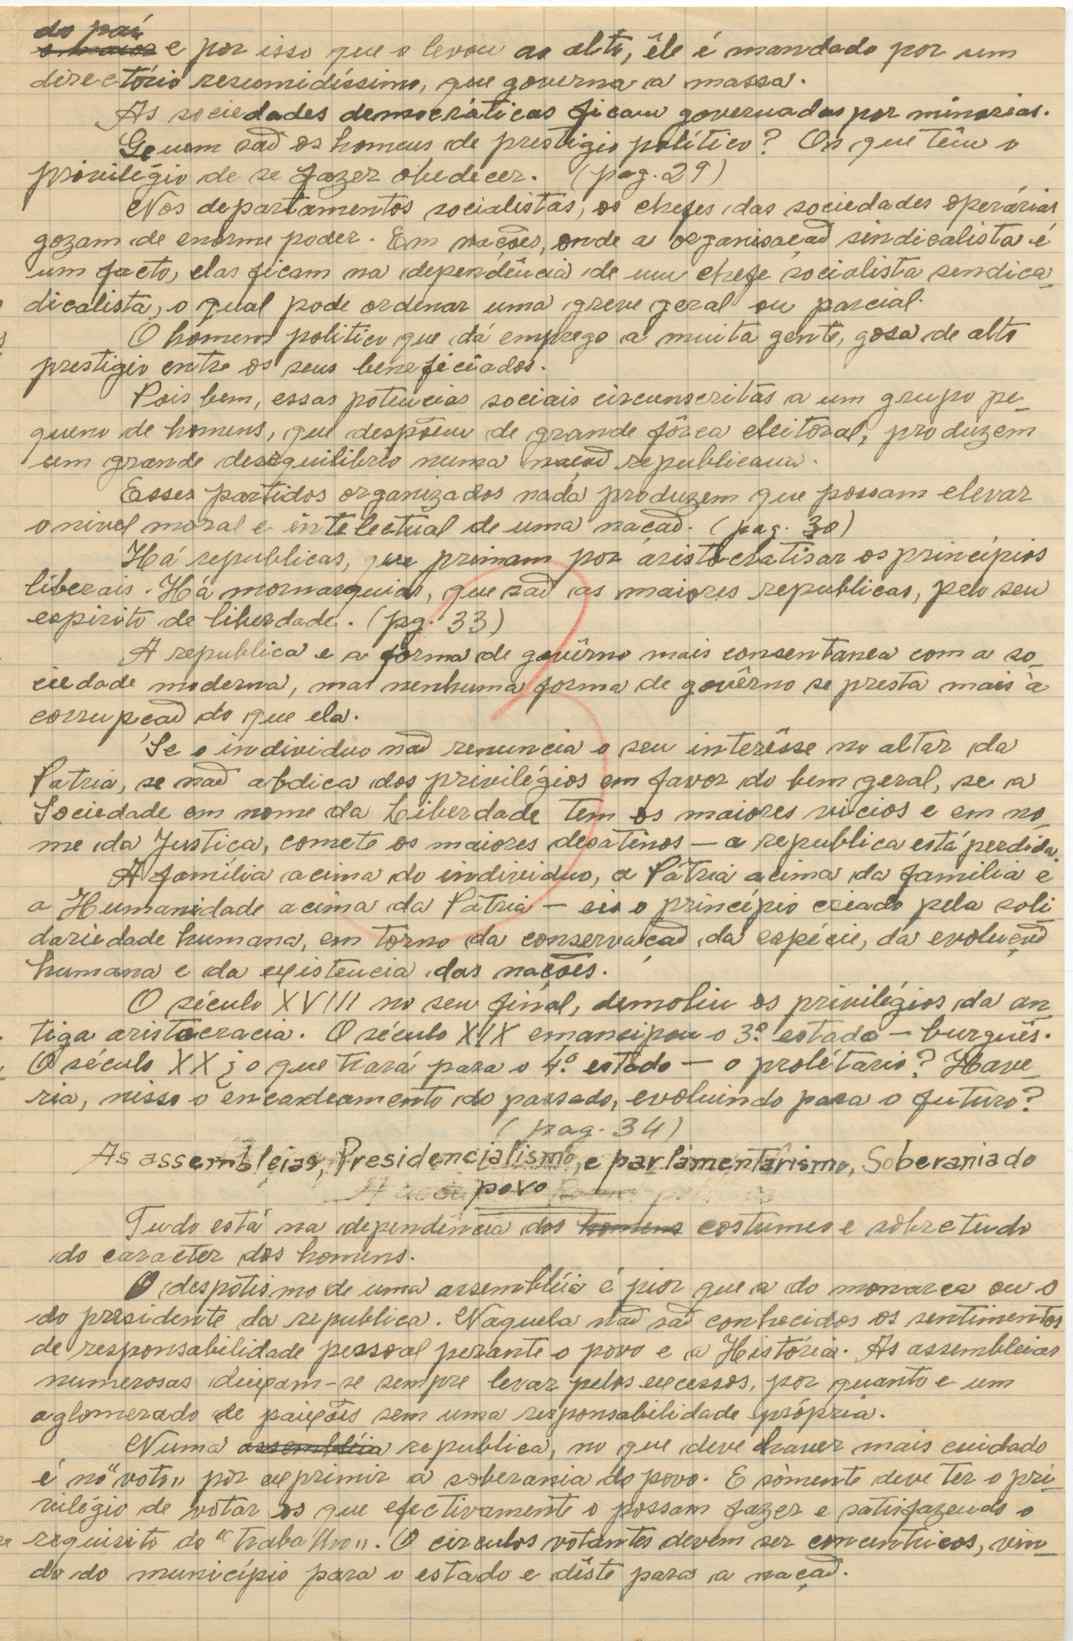 do paí
e por isso que o levou ao alto, êle é mandado por um
directório resumidíssimo, que governa a massa.
As sociedades democráticas ficam governadas por minorias.
Quem saõ os homens de prestigio político? Os que têm o
privilégio de se fazer obedecer. (pag. 29)
Nos departamentos socialistas, os chefes das sociedades operárias
gozam de enorme poder. Em nações, onde a organisacaõ sindicalista é
um facto, elas ficam na dependência de um chefe socialista sendica_
dicalista, o qual pode ordenar uma greve geral ou parcial.
O homem politico que dá emprego a muita gente, gosa de alto
prestigio entre os seus beneficiados.
Pois bem, essas potencias sociais circunscritas a um grupo pe_
queno de homens, que despõem de grande fôrca eleitoral, produzem
um grande desequilibrio numa naçaõ republicana.
Esses partidos organizados nada produzem que possam elevar
o nivel moral e intelectual de uma nacaõ. (pag. 30)
Há republicas, que primam por áristocratisar os princípios
liberais. Há mornarquias, que saõ as maiores republicas, pelo seu
espirito de liberdade. (pg. 33)
A republica e a forma de govêrno mais consentanea com a so_
ciedade moderna, mas nenhuma forma de govêrno se presta mais à
corrupcaõ do que ela.
Se o individuo naõ renuncia o seu interêsse no altar da
Patria, se naõ abdica dos privilégios em favor do bem geral, se a
Sociedade em nome da Liberdade tem os maiores vicios e em no_
me da Justica, comete os maiores desatinos — a republica está perdida.
A família acima do individuo, a Pátria acima da familia e
a Humanidade acima da Pátria — eis o princípio criado pela soli
dariedade humana, em torno da conservaçaõ da espécie, da evoluçaõ
humana e da existencia das nações.
O século XVIII no seu final, demoliu os privilégios da an_
tiga aristocracia. O século XIX emancipou o 3º estado — burguês.
O século XX ¿ o que trará para o 4º estado — o prolétario? Have_
ria, nisso o encadeamento do passado, evoluindo para o futuro?
(pag. 34)
As assembleias, Presidencialismo, e parlamentarismo, Soberania do
povo
Tudo está na dependência dos homens costumes e sobretudo
do caracter dos homens.
O despótismo de uma assembléia é pior que a do monarca ou o
do presidente da republica. Naquela naõ saõ conhecidos os sentimentos
de responsabilidade pessoal perante o povo e a História. As assembleias
numerosas deixam-se sempre levar pelos excessos, por quanto e um
aglomerado de paixões sem uma responsabilidade própria.
Numa assembléia republica, no que deve haver mais cuidado
é no "voto" por exprimir a soberania do povo. E sòmente deve ter o pri_
vilégio de votar os que efectivamente o possam fazer e satisfazendo o
requisito do "trabalho". O circulos votantes devem ser concentricos, vin_
do do município para o estado e dêste para a naçaõ.